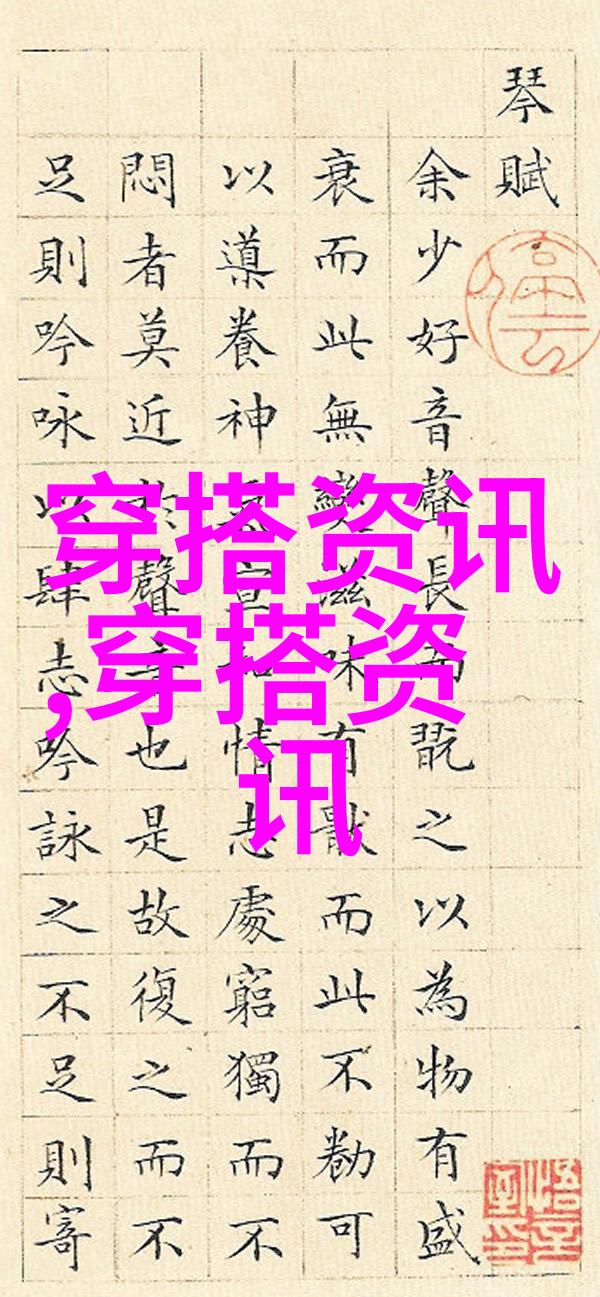 琴賦
余少好音聲長而翫之以為物有盛
衰而此無變滋味有猒而此不勌可
以導養神氣宣和情志處窮獨而不
悶者莫近於聲音也是故復之而不
足則吟咏以肆志吟詠之不足則寄
穿搭资讯
,穿搭资
讯